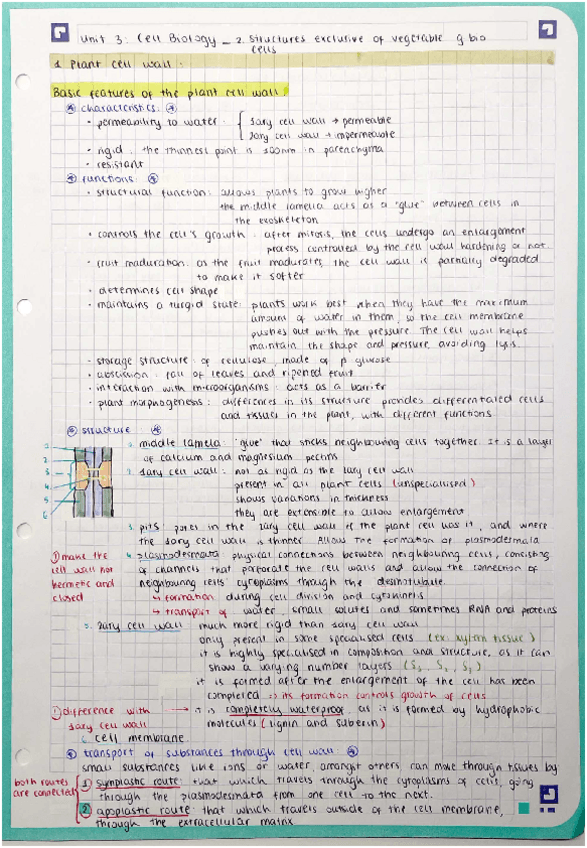 Unit 3: Cell Biology – 2. Structures exclusive of vegetable g bio
cells
1. Plant cell wall.
Basic features of the plant cell wall:
characteristics:
· permeability to water: { 1ary cell wall → permeable
2ary cell wall → impermeable
· rigid: the thinnest point is 100nm in parenchyma
· resistant
functions:
· structural function: allows plants to grow higher
the middle lamella acts as a "glue" between cells in
the exoskeleton
· controls the cell's growth: after mitosis, the cells undergo an enlargement
process controlled by the cell wall hardening or not.
· fruit maduration: as the fruit madurates, the cell wall is partially degraded
to make it softer
· determines cell shape
· maintains a turgid state: plants work best when they have the maximum
amount of water in them, so the cell membrane
pushes out with the pressure. The cell wall helps
maintain the shape and pressure, avoiding lysis.
· storage structure: of cellulose, made of β glucose
· abscission: fall of leaves and ripened fruit
· interaction with microorganisms: acts as a barrier
· plant morphogenesis: differences in its structure provides differentiated cells
and tissues in the plant, with different functions.
structure
1. middle lamela: "glue" that sticks neighbouring cells together. It is a layer
of calcium and magnesium pectins
2. 1ary cell wall: not as rigid as the 2ary cell wall
present in all plant cells (unspecialised)
shows variations in thickness
they are extensible to allow enlargement
1
2
3
4
5
6
3. pits: pores in the 2ary cell wall if the plant cell has it, and where
the 1ary cell wall is thinner. Allow the formation of plasmodesmata
① make the
cell wall not
hermetic and
closed
4. plasmodesmata: physical connections between neighbouring cells, consisting
of channels that perforate the cell walls and allow the connection of
neighbouring cells' cytoplasms through the desmotubule.
↳ formation during cell division and cytokinesis
↳ transport of water, small solutes and sometimes RNA and proteins
5. 2ary cell wall: much more rigid than 1ary cell wall
only present in some specialised cells (ex: xylem tissue)
it is highly specialised in composition and structure, as it can
show a varying number layers (S₃, S₂, S₁)
it is formed after the enlargement of the cell has been
completed => its formation controls growth of cells
① difference with
1ary cell wall
→ it is completely waterproof, as it is formed by hydrophobic
molecules (lignin and suberin)
6. cell membrane
transport of substances through cell wall:
small substances like ions or water, amongst others, can move through tissues by
both routes
are connected
① symplastic route: that which travels through the cytoplasms of cells, going
through the plasmodesmata from one cell to the next.
② apoplastic route: that which travels outside of the cell membrane,
through the extracellular matrix